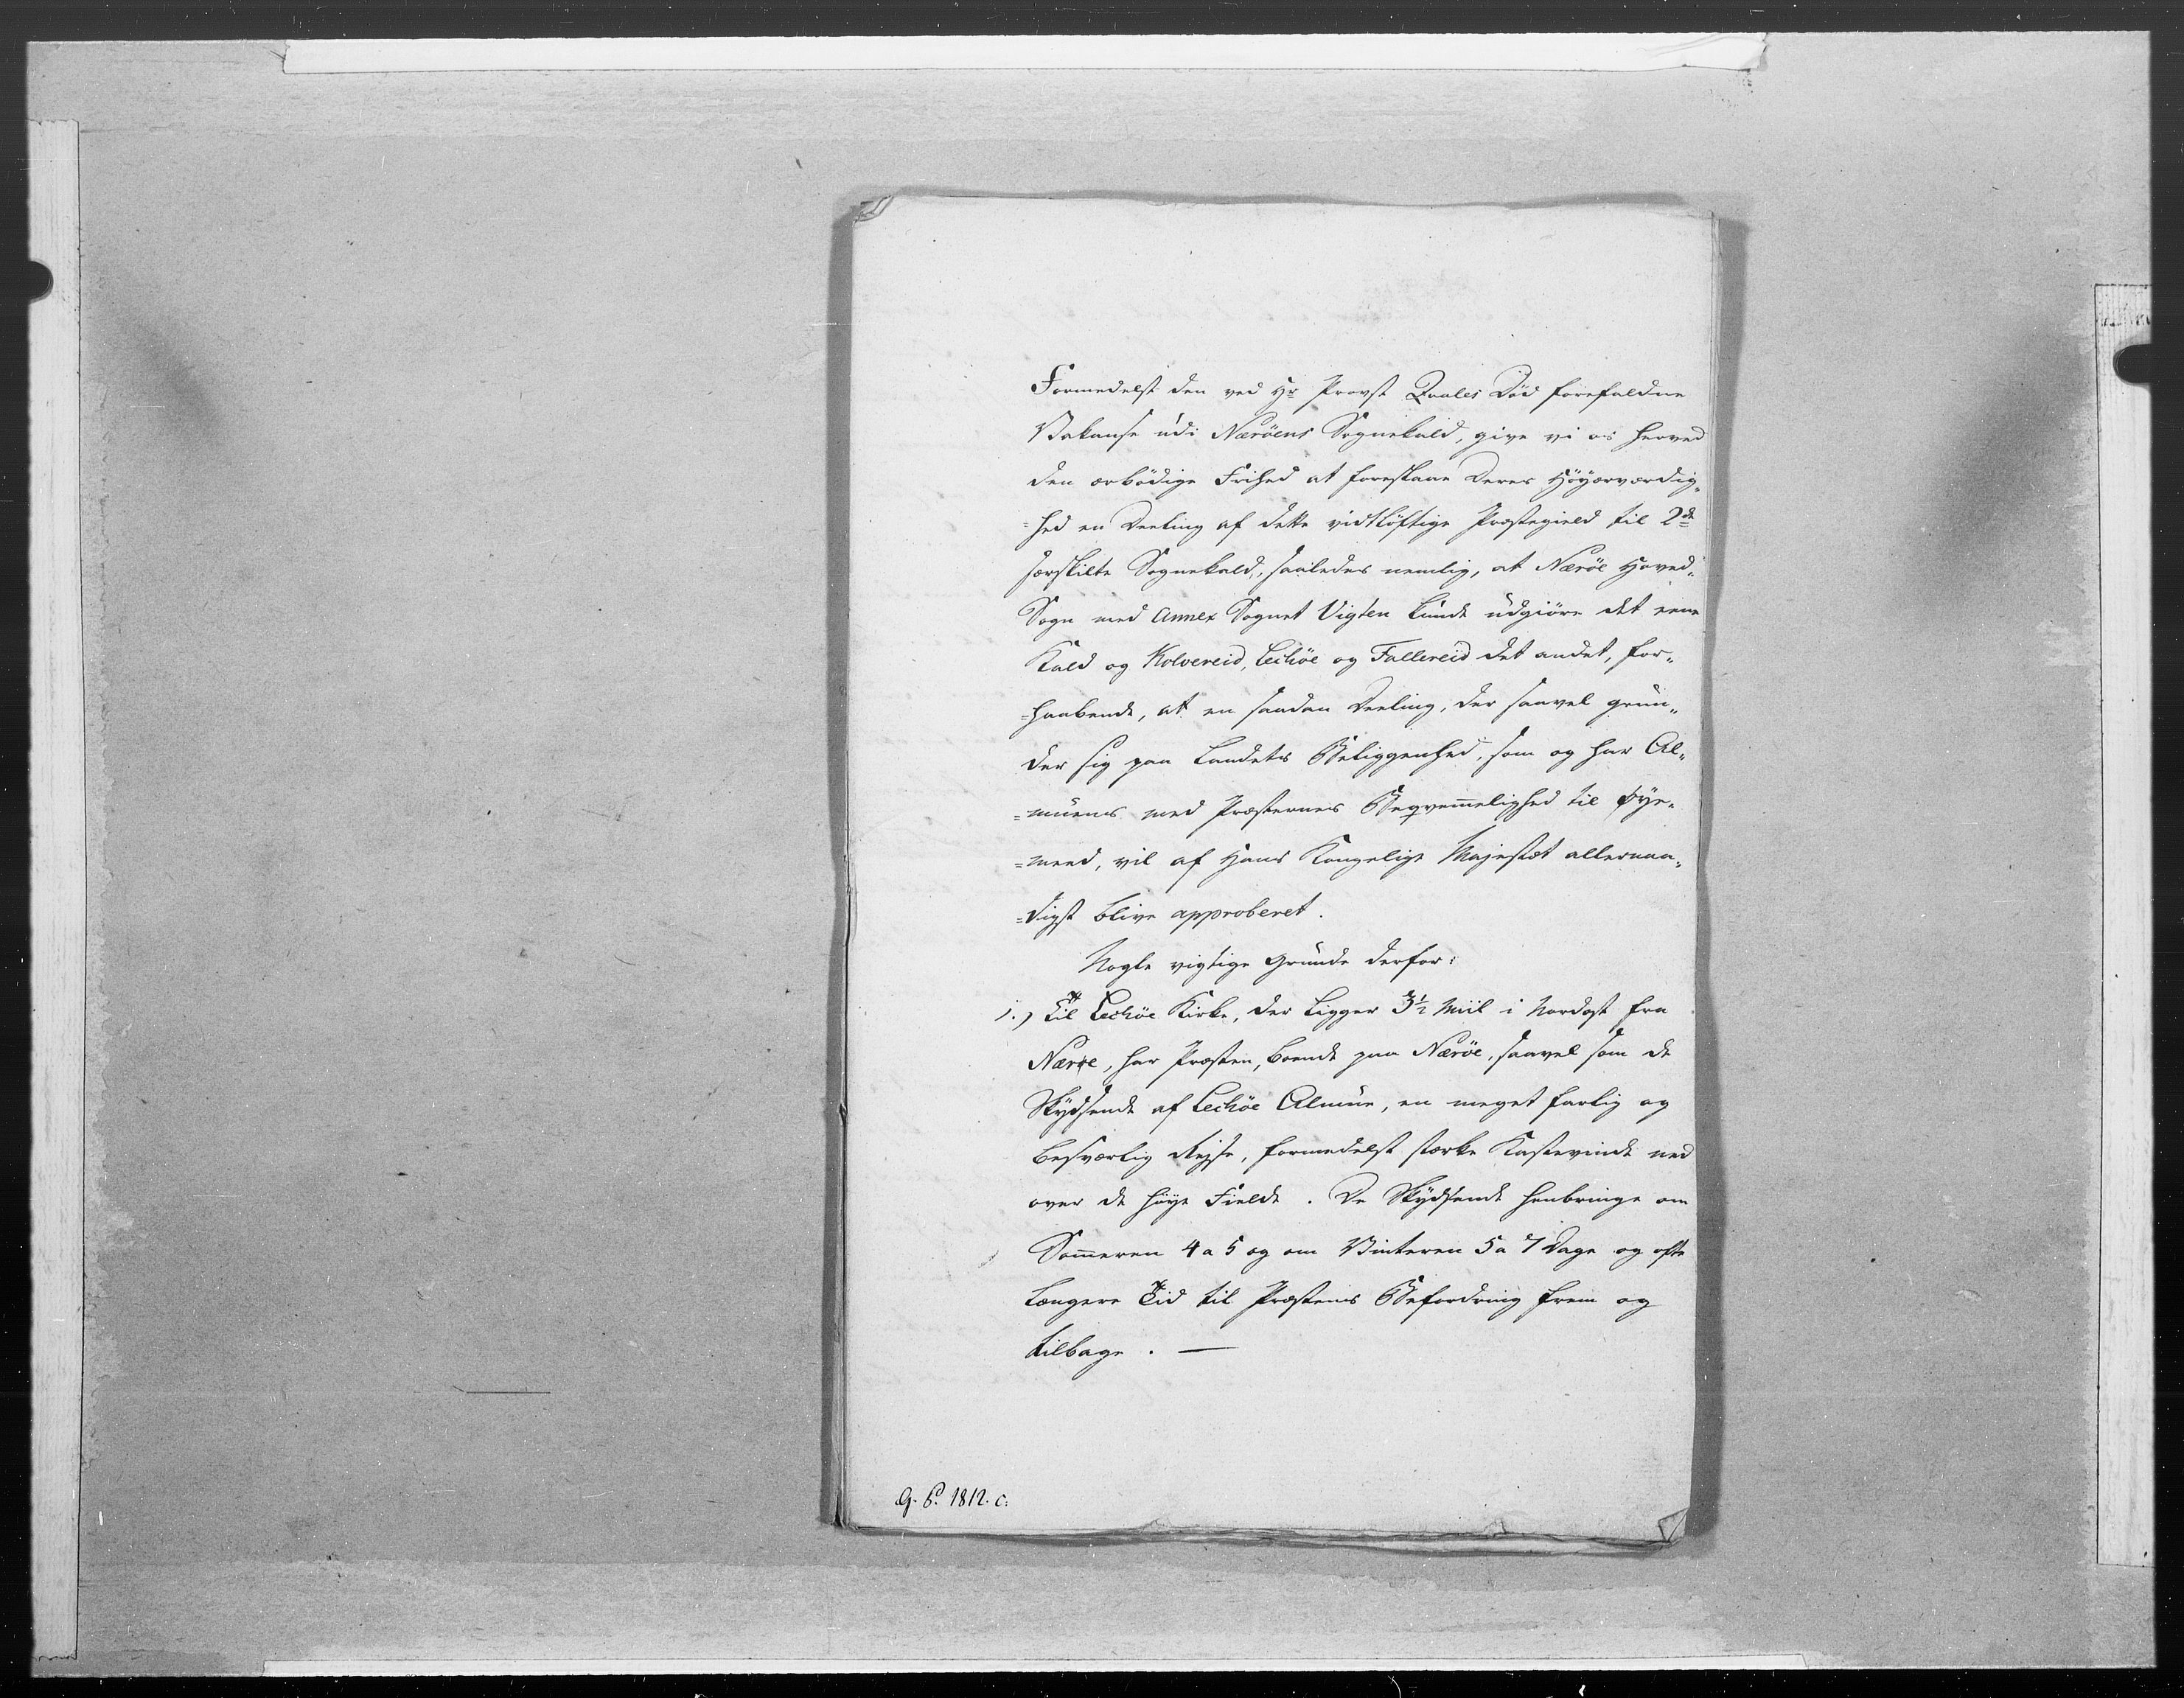 Formedelst den ved Hr Provst Qvales Död forefaldne
Vakanse udi Næröens Sognekald, give vi os herved
den ærbödige Frihed at foreslaae Deres Höyærværdig„
=hed en Deeling af dette vidtlöftige Præstegield til 2de
særskilte Sognekald, saaledes nemlig, at Næröe Hoved„
Sogn med Annex Sognet Vigten kunde udgiöre det eene
Kald og Kolvereid, Lechöe og Fallereid det andet, for„
=haabende, at en saadan Deeling, der saavel grun„
der sig paa Landets Beliggenhed, som og har Al„
=muens med Præsternes Beqvemmelighed til Øye„
=meed, vil af Hans Kongelige Majestæt allernaa„
=digst blive approberet.
Nogle vigtige Grunde derfor:
1.) Til Lechöe Kirke, der ligger 3½ Miil i Nordost fra
Næröe, har Præsten, boende paa Næröe, saavel som de
Skydsende af Lechöe Almue, en meget farlig og
besværlig Rejse, formedelst stærke Kastevinde ned
over de höye Fielde. De Skydsende henbringe om
Sommeren 4 a 5 og om Vinteren 5 a 7 Dage og ofte
længere Tid til Præstens Befordring frem og
tilbage. —
G. P. 1812. C: